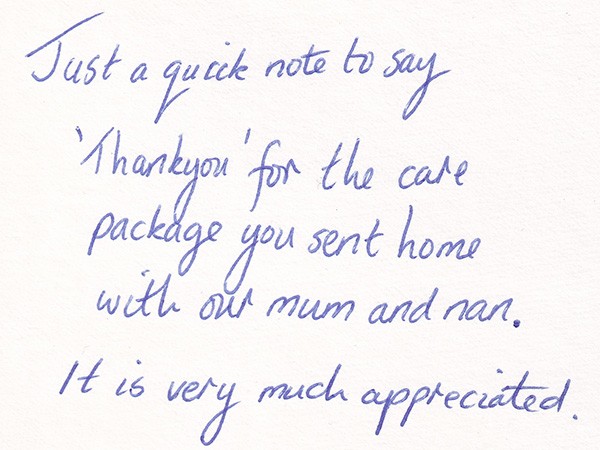 Just a quick note to say
'Thankyou' for the care
package you sent home
with our mum and nan.
It is very much appreciated.